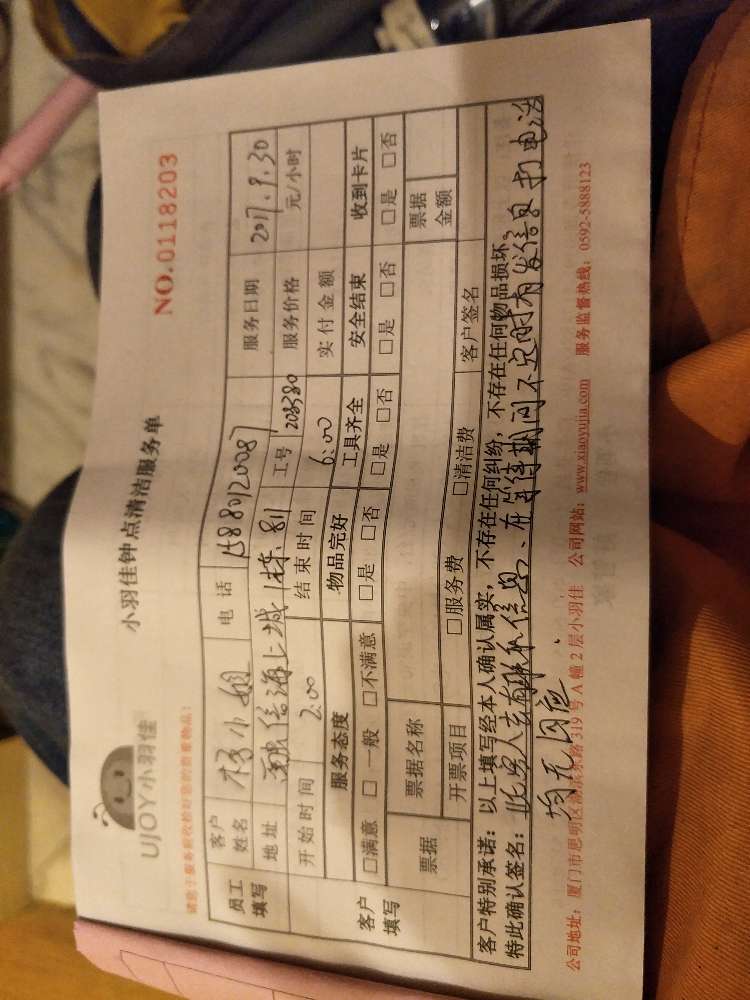 UJOY小羽佳
小羽佳钟点清洁服务单
NO.0118203
请您于服务前收检好您的贵重物品！
员工填写 客户姓名 杨小姐 电话 15880120087 服务日期 2017.9.30
地址 融信海上城1栋811 工号 203580 服务价格 元/小时
开始时间 2:00 结束时间 6:00 实付金额
客户填写 服务态度 物品完好 工具齐全 安全结束 收到卡片
□满意 □一般 □不满意 □是 □否 □是 □否 □是 □否 □是 □否
票据 票据名称 票据金额
开票项目 □服务费 □清洁费 客户签名
客户特别承诺：以上填写经本人确认属实，不存在任何纠纷，不存在任何物品损坏。
特此确认签名： 客人去 信息、在等待期间不定时有发信息打电话
均无回应.
公司地址：厦门市思明区湖滨东路319号A幢2层小羽佳 公司网站：www.xiaoyujia.com 服务监督热线：0592-5888123